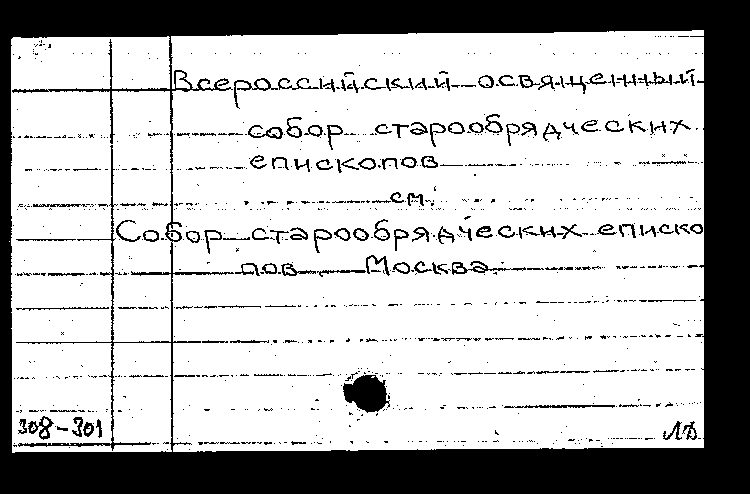 Всероссийский освященный
собор старообрядческих
епископов
см.
Собор старообрядческих еписко
пов. Москва.
308-301
ЛД